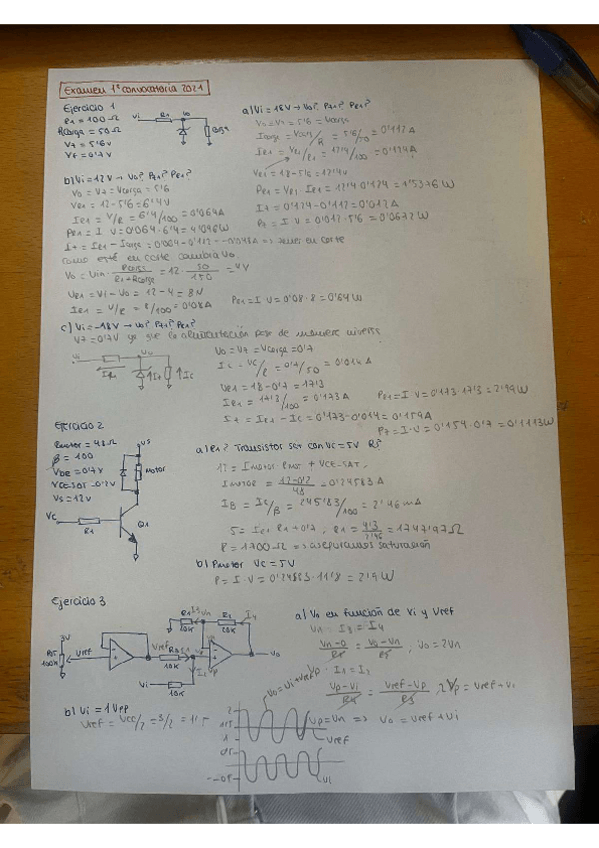 Examen 1ª convocatoria 2021
Ejercicio 1
R1 = 100Ω
Rcarga = 50Ω
Vz = 5'6V
Vf = 0'7V
Vi
R1
Vo
a) Vi = 18V → Vo? Pz? PR1?
Vo = Vz = 5'6 = Vcarga
Icarga = Vcarg/R = 5'6/50 = 0'112A
IR1 = VR1/R1 = 12'4/100 = 0'124A
VR1 = 18 - 5'6 = 12'4V
PR1 = VR1 · IR1 = 12'4 · 0'124 = 1'5376 W
Iz = 0'124 - 0'112 = 0'012A
Pz = I · V = 0'012 · 5'6 = 0'0672 W
b) Vi = 12V → Vo? Pz? PR1?
Vo = Vz = Vcarga = 5'6
VR1 = 12 - 5'6 = 6'4V
IR1 = V/R = 6'4/100 = 0'064A
PR1 = I · V = 0'064 · 6'4 = 4096W
Iz = IR1 - Icarga = 0'064 - 0'112 = -0'048A => zener en corte
Como esté en corte cambia Vo
Vo = Vin · Rcarga/R1 + Rcarga = 12 · 50/150 = 4V
VR1 = Vi - Vo = 12 - 4 = 8V
IR1 = V/R = 8/100 = 0'08A
PR1 = I · V = 0'08 · 8 = 0'64 W
c) Vi = -18V → Vo? Pz? PR1?
Vz = 0'7V ya que la alimentación pasa de manera inversa
Vo = Vz = Vcarga = 0'7
Ic = Vc/R = 0'7/50 = 0'014A
VR1 = 18 - 0'7 = 17'3
IR1 = 17'3/100 = 0'173A
PR1 = I · V = 0'173 · 17'3 = 2'99W
Iz = IR1 - Ic = 0'173 - 0'014 = 0'159A
Pz = I · V = 0'159 · 0'7 = 0'1113W
Ejercicio 2
Rmotor = 48Ω
β = 100
VBE = 0'7V
VCE-SAT = 0'2V
Vs = 12V
Vs
Motor
Vc
R1
Q1
a) R1? Transistor sat con Vc = 5V
12 = Imotor · Rmot + VCE-SAT
Imotor = 12 - 0'2/48 = 0'24583A
IB = Ic/β = 245'83/100 = 2'46 mA
5 = IR1 · R1 + 0'7 ; R1 = 4'3/2'46 = 1747'97Ω
R = 1700Ω => aseguramos saturación
b) Pmotor Vc = 5V
P = I · V = 0'24583 · 11'8 = 2'9 W
Ejercicio 3
3V
100K
Vref
Vref
10K
Vi
10K
10K
Vn
R1
10K
I4
Vp
Vo
a) Vo en función de Vi y Vref
Vn · I3 = I4
Vn - 0/R1 = Vo - Vn/R1 ; Vo = 2Vn
Vp · I1 = I2
Vp - Vi/R1 = Vref - Vp/R1 ; 2Vp = Vref + Vi
Vp = Vn => Vo = Vref + Vi
b) Vi = 1Vpp
Vref = Vcc/2 = 3/2 = 1'5
Vo = Vi + Vref
2
1'5
1
Vref
0'5
-0'5
Vi